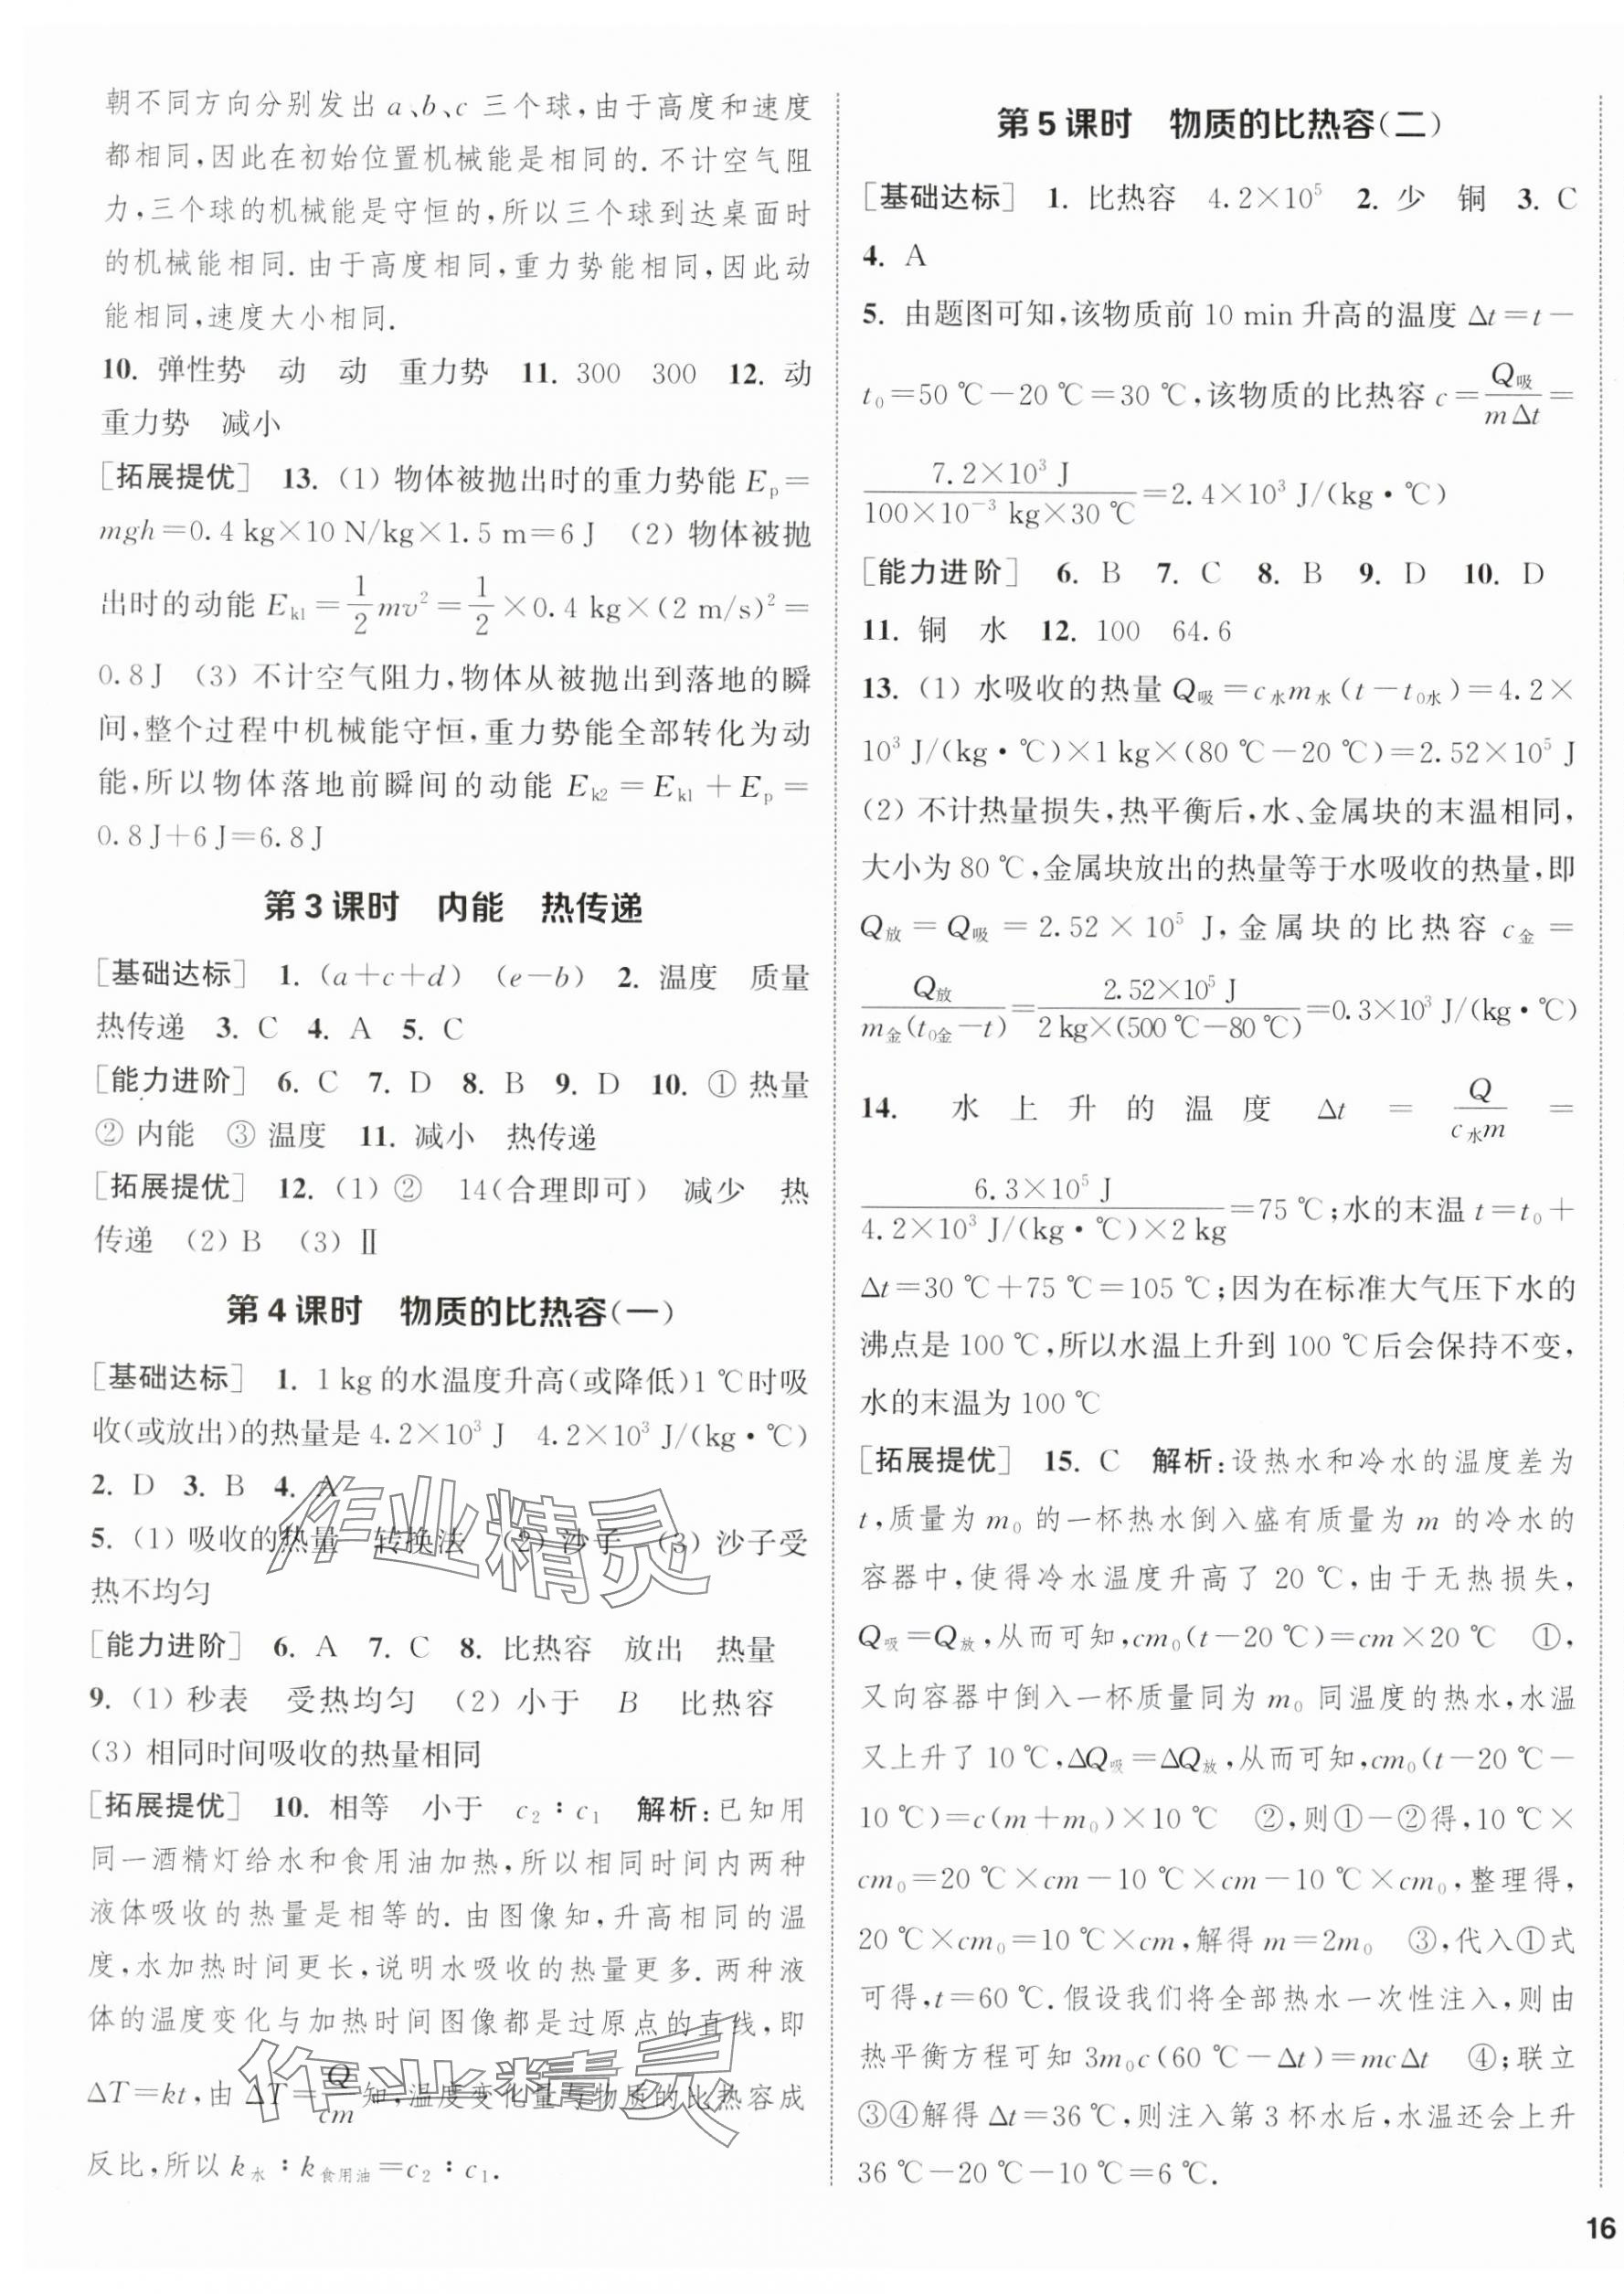 朝不同方向分别发出 a、b、c 三个球,由于高度和速度
都相同,因此在初始位置机械能是相同的. 不计空气阻
力,三个球的机械能是守恒的,所以三个球到达桌面时
的机械能相同. 由于高度相同,重力势能相同,因此动
能相同,速度大小相同.
10. 弹性势 动 动 重力势 11. 300 300 12. 动
重力势 减小
[拓展提优] 13. (1) 物体被抛出时的重力势能 Eₚ=
mgh=0.4 kg×10 N/kg×1.5 m=6 J (2) 物体被抛
出时的动能 E_{k1}=\frac{1}{2}mv²=\frac{1}{2}×0.4 kg×(2 m/s)²=
0.8 J (3) 不计空气阻力,物体从被抛出到落地的瞬
间,整个过程中机械能守恒,重力势能全部转化为动
能,所以物体落地前瞬间的动能 E_{k2}=E_{k1}+Eₚ=
0.8 J+6 J=6.8 J
第 3 课时 内能 热传递
[基础达标] 1. (a+c+d) (e-b) 2. 温度 质量
热传递 3. C 4. A 5. C
[能力进阶] 6. C 7. D 8. B 9. D 10. ① 热量
② 内能 ③ 温度 11. 减小 热传递
[拓展提优] 12. (1) ② 14(合理即可) 减少 热
传递 (2) B (3) Ⅱ
第 4 课时 物质的比热容(一)
[基础达标] 1. 1 kg的水温度升高(或降低)1 ℃时吸
收(或放出)的热量是 4.2×10³ J 4.2×10³ J/(kg·℃)
2. D 3. B 4. A
5. (1) 吸收的热量 转换法 (2) 沙子 (3) 沙子受
热不均匀
[能力进阶] 6. A 7. C 8. 比热容 放出 热量
9. (1) 秒表 受热均匀 (2) 小于 B 比热容
(3) 相同时间吸收的热量相同
[拓展提优] 10. 相等 小于 c₂∶c₁ 解析:已知用
同一酒精灯给水和食用油加热,所以相同时间内两种
液体吸收的热量是相等的. 由图像知,升高相同的温
度,水加热时间更长,说明水吸收的热量更多. 两种液
体的温度变化与加热时间图像都是过原点的直线,即
ΔT=kt,由 ΔT=\frac{Q}{cm}知,温度变化量与物质的比热容成
反比,所以 k_水∶k_食用油=c₂∶c₁.
第 5 课时 物质的比热容(二)
[基础达标] 1. 比热容 4.2×10⁵ 2. 少 铜 3. C
4. A
5. 由题图可知,该物质前 10 min 升高的温度 Δt=t-
t₀=50 ℃-20 ℃=30 ℃,该物质的比热容 c=\frac{Q_吸}{mΔt}=
\frac{7.2×10³ J}{100×10⁻³ kg×30 ℃}=2.4×10³ J/(kg·℃)
[能力进阶] 6. B 7. C 8. B 9. D 10. D
11. 铜 水 12. 100 64.6
13. (1) 水吸收的热量 Q_吸=c_水m_水(t-t_{0水})=4.2×
10³ J/(kg·℃)×1 kg×(80 ℃-20 ℃)=2.52×10⁵ J
(2) 不计热量损失,热平衡后,水、金属块的末温相同,
大小为 80 ℃,金属块放出的热量等于水吸收的热量,即
Q_放=Q_吸=2.52×10⁵ J,金属块的比热容 c_金=
\frac{Q_放}{m_金(t_{0金}-t)}=\frac{2.52×10⁵ J}{2 kg×(500 ℃-80 ℃)}=0.3×10³ J/(kg·℃)
14. 水上升的温度 Δt=\frac{Q}{c_水m}=
\frac{6.3×10⁵ J}{4.2×10³ J/(kg·℃)×2 kg}=75 ℃;水的末温 t=t₀+
Δt=30 ℃+75 ℃=105 ℃;因为在标准大气压下水的
沸点是 100 ℃,所以水温上升到 100 ℃后会保持不变,
水的末温为 100 ℃
[拓展提优] 15. C 解析:设热水和冷水的温度差为
t,质量为 m₀ 的一杯热水倒入盛有质量为 m 的冷水的
容器中,使得冷水温度升高了 20 ℃,由于无热损失,
Q_吸=Q_放,从而可知,cm₀(t-20 ℃)=cm×20 ℃ ①,
又向容器中倒入一杯质量同为 m₀ 同温度的热水,水温
又上升了 10 ℃,ΔQ_吸=ΔQ_放,从而可知,cm₀(t-20 ℃-
10 ℃)=c(m+m₀)×10 ℃ ②,则①-②得,10 ℃×
cm₀=20 ℃×cm-10 ℃×cm-10 ℃×cm₀,整理得,
20 ℃×cm₀=10 ℃×cm,解得 m=2m₀ ③,代入①式
可得,t=60 ℃. 假设我们将全部热水一次性注入,则由
热平衡方程可知 3m₀c(60 ℃-Δt)=mcΔt ④;联立
③④解得 Δt=36 ℃,则注入第 3 杯水后,水温还会上升
36 ℃-20 ℃-10 ℃=6 ℃.
16
作业精灵
作业精灵